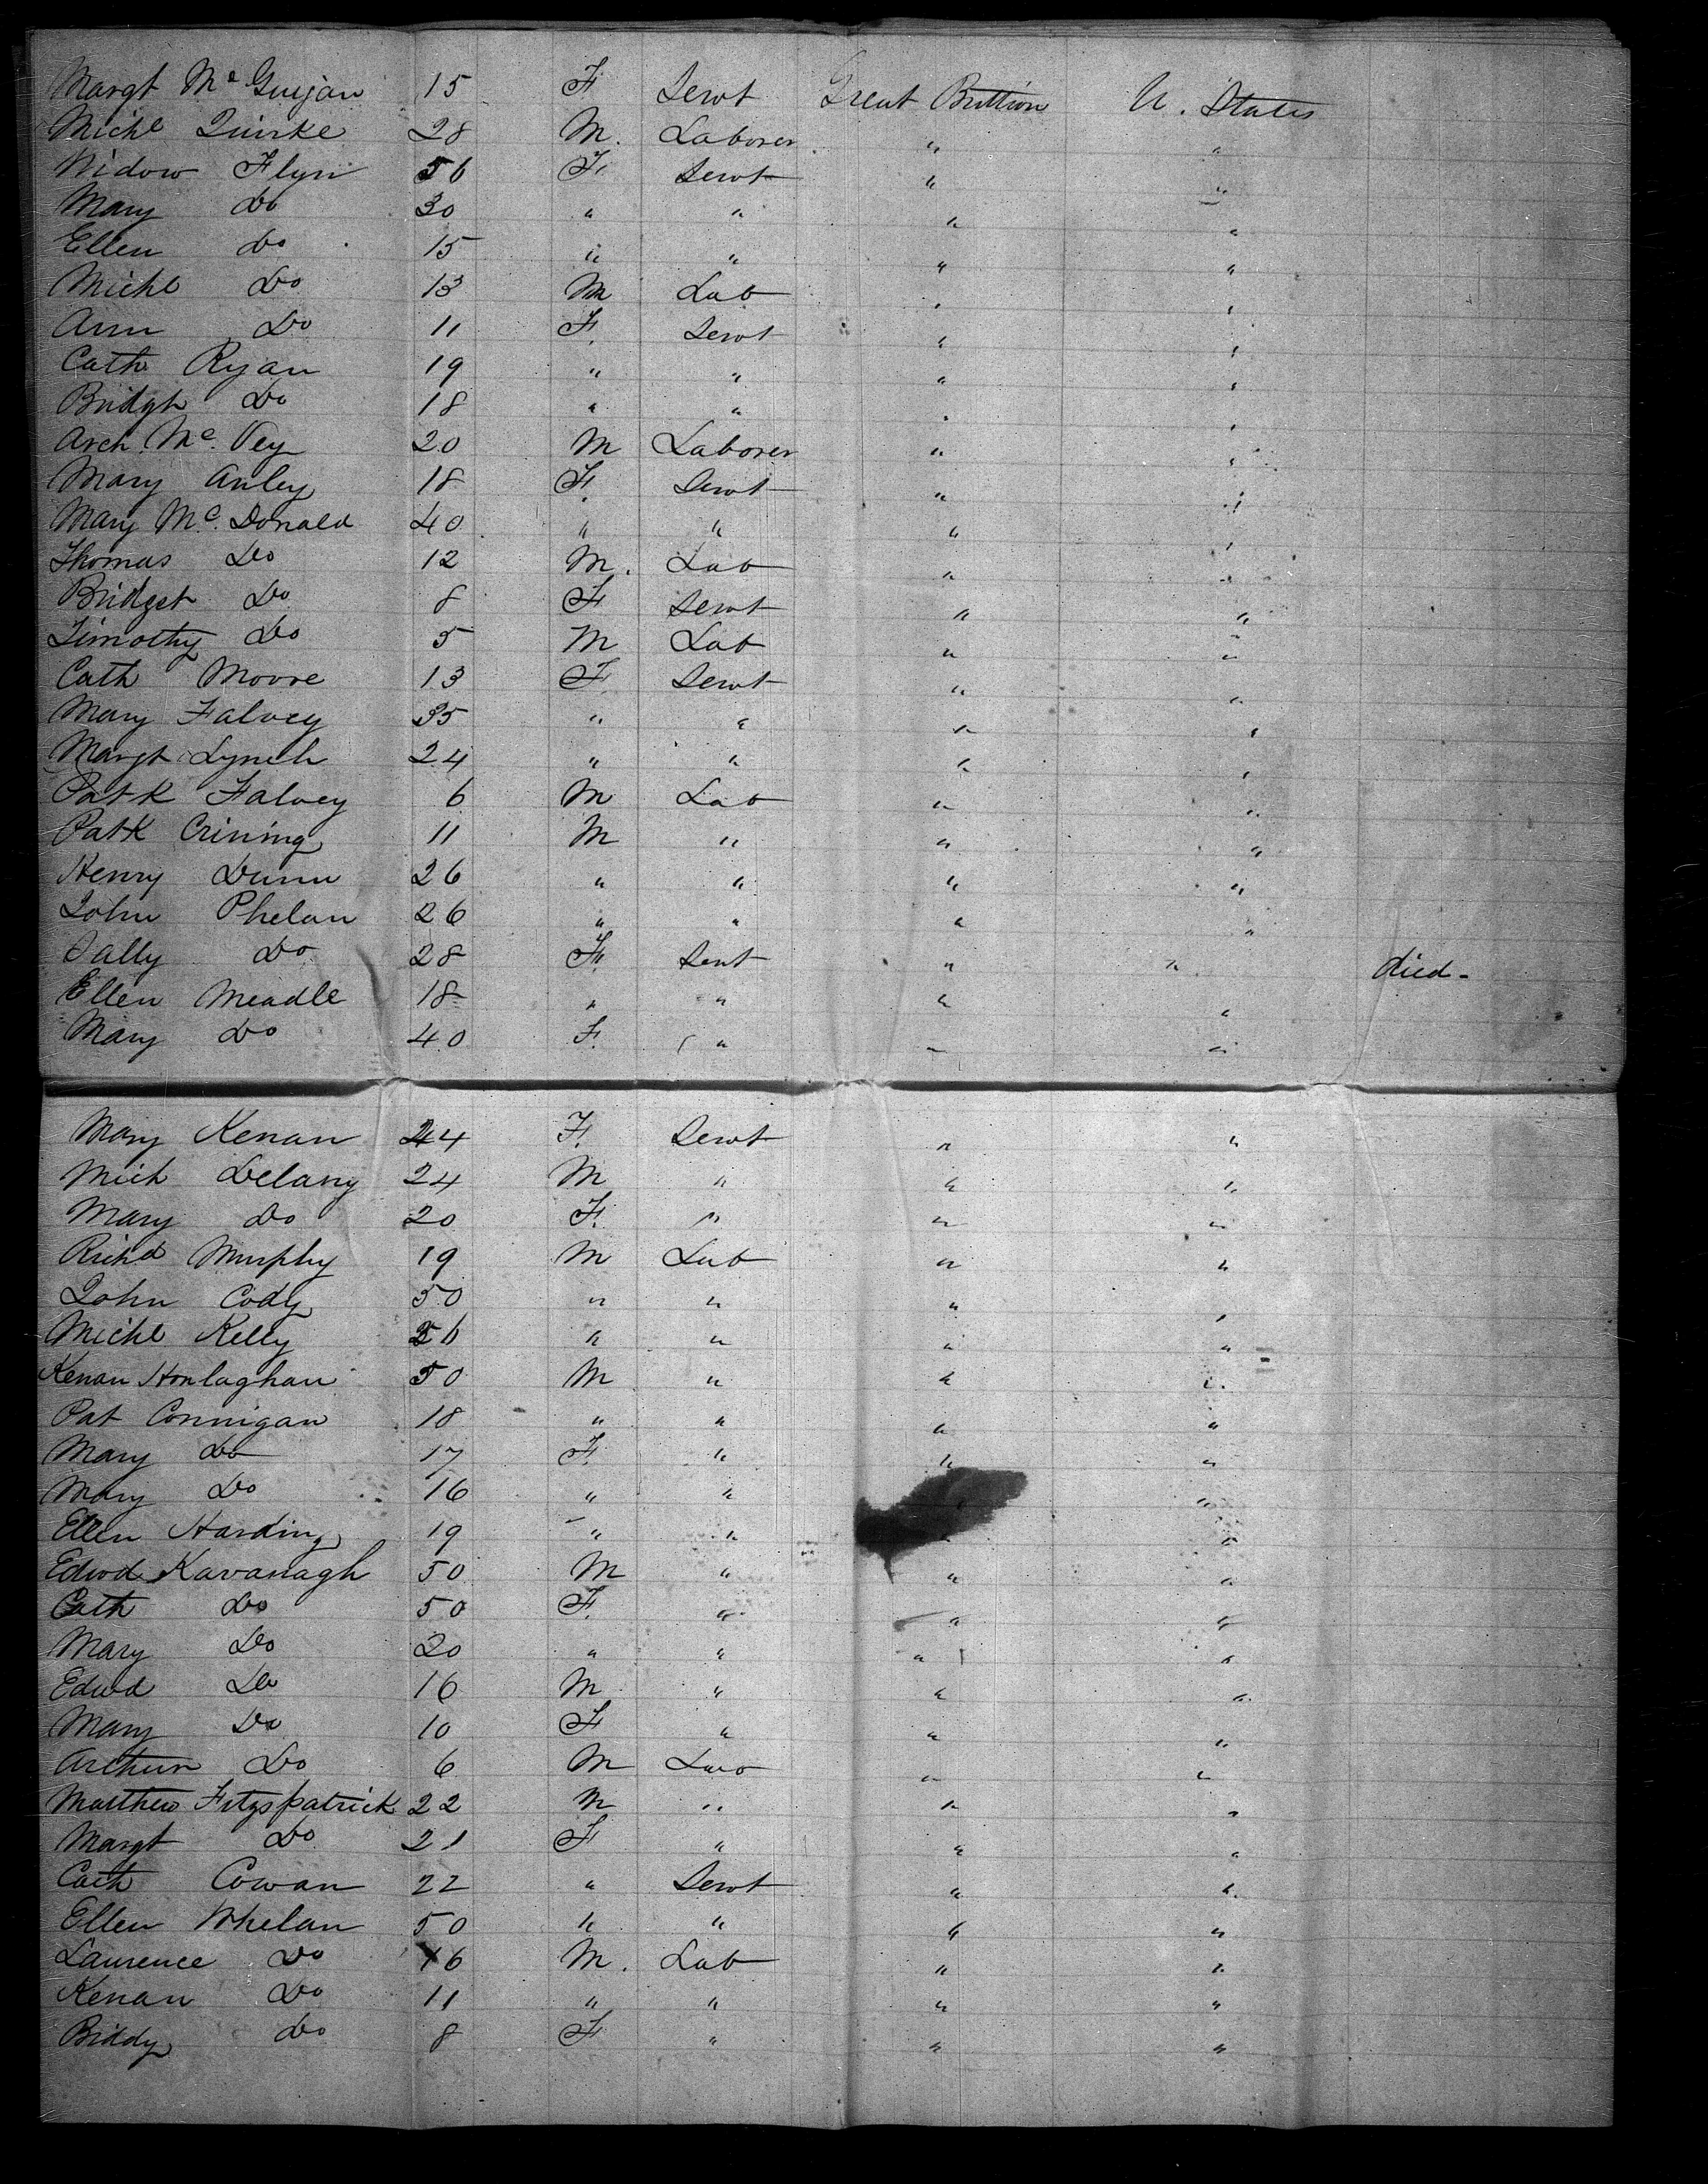 Margt Mc Guijan 15 F Servt Great Brittion U. States
Michl Quirke 28 M. Laborer " "
Widow Flyn 56 F. Servt " "
Mary Do 30 " " " "
Ellen Do 15 " " " "
Michl Do 13 M Lab " "
Ann Do 11 F. Servt " "
Cath Ryan 19 " " " "
Bridgt Do 18 " " " "
Arch. Mc. Vey 20 M Laborer " "
Mary Anley 18 F. Servt " "
Mary Mc. Donald 40 " " " "
Thomas Do 12 M. Lab " "
Bridget Do 8 F Servt " "
Timothy Do 5 M Lab " "
Cath Moore 13 F. Servt " "
Mary Falvey 35 " " " "
Margt Lynch 24 " " " "
Patk Falvey 6 M Lab " "
Patk Crining 11 M " " "
Henry Dunn 26 " " " "
John Phelan 26 " " " "
Sally Do 28 F. Sevt " " died-
Ellen Meadle 18 " " " "
Mary Do 40 F. " " "
Mary Kenan 24 F. Servt " "
Mich Delany 24 M " " "
Mary Do 20 F. " " "
Richd Murphy 19 M Lab " "
John Cody 50 " " " "
Michl Kelly 26 " " " "
Kenan Honlaghan 50 M " " "
Pat Connigan 18 " " " "
Mary Do 17 F. " " "
Mary Do 16 " " " "
Ellen Harding 19 " " " "
Edwd Kavanagh 50 M " " "
Cath Do 50 F. " " "
Mary Do 20 " " " "
Edwd Do 16 M " " "
Mary Do 10 F " " "
Arthur Do 6 M Lab " "
Matthew Fitzspatrick 22 M " " "
Margt Do 21 F " " "
Cath Cowan 22 " Servt " "
Ellen Whelan 50 " " " "
Laurence Do 16 M. Lab " "
Kenan Do 11 " " " "
Biddy Do 8 F " " "